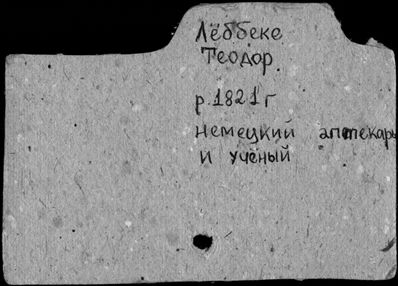 Лёббеке
Теодор
р. 1821 г
немецкий аптекарь
и учёный